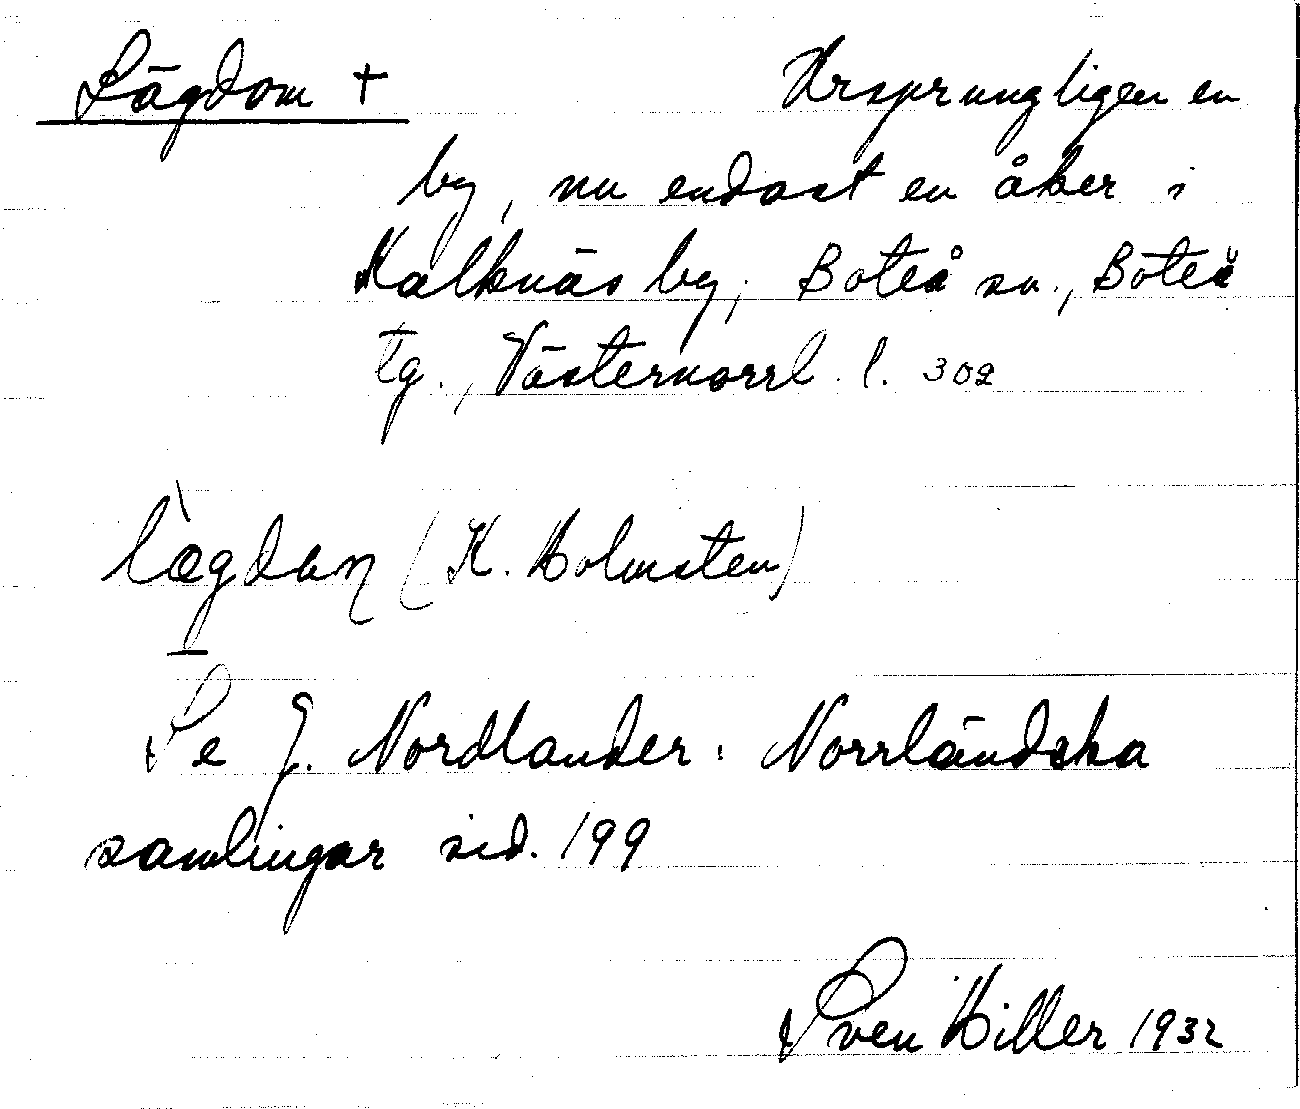 Lägdom +
Ursprungligen en
by, nu endast en åker i
Kalknäs by, Boteå sn., Boteå
tg., Västernorrl. l. 302
lægdan (K. Holmsten)
Se J. Nordlander: Norrländska
samlingar sid. 199
Sven Hiller 1932